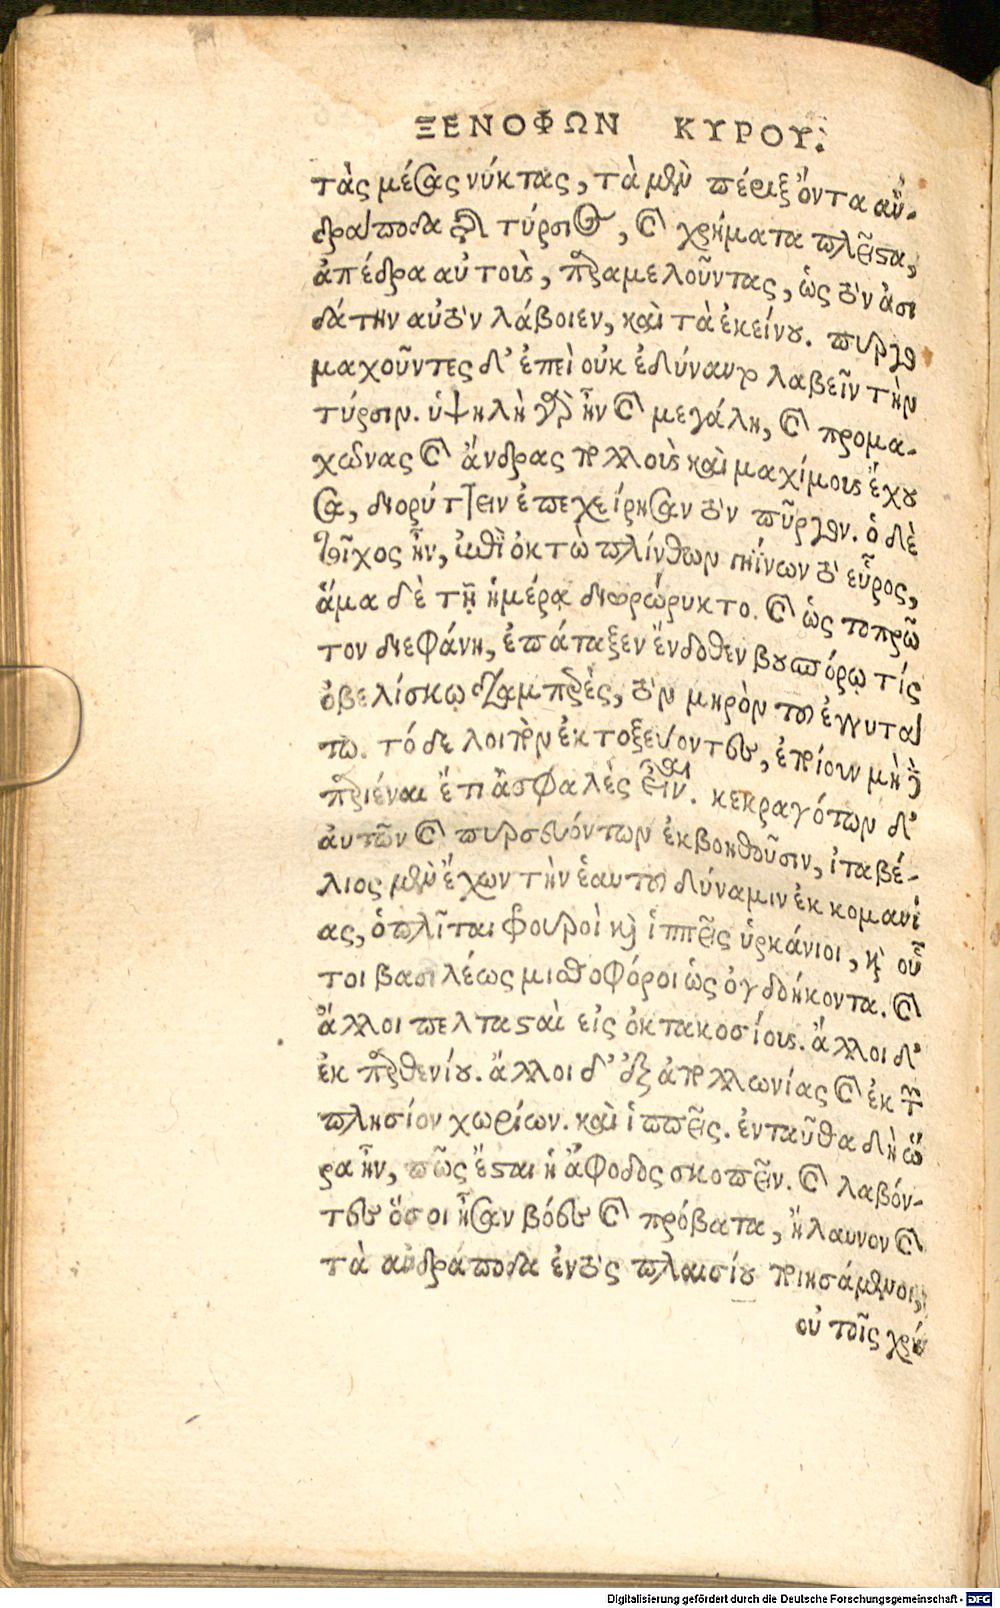 ΞΕΝΟΦΩΝ ΚΥΡΟΥ.
τὰς μέσας νύκτας, τὰ μὲν πέριξ ὄντα αν-
δράποδα τῆς τύρσιος, καὶ χρήματα πλεῖστα,
ἀπέδρα αὐτοὺς, παραμελοῦντας, ὡς τὸν ἀσι
δάτην αὐτὸν λάβοιεν, καὶ τὰ ἐκείνου. πυργο
μαχοῦντες δ' ἐπεὶ οὐκ ἐδύναντο λαβεῖν τὴν
τύρσιν. ὑψηλὴ γὰρ ἦν καὶ μεγάλη, καὶ προμα-
χεῶνας καὶ ἄνδρας πολλοὺς καὶ μαχίμους ἔχου
σα, διορύττειν ἐπεχείρησαν τὸν πῦργον. ὁ δὲ
τεῖχος ἦν, ἐπὶ ὀκτὼ πλίνθων γηΐνων τὸ εὖρος,
ἅμα δὲ τῇ ἡμέρᾳ διωρώρυκτο. καὶ ὡς τοπρῶ
τον διεφάνη, ἐπάταξεν ἔνδοθεν βουπόρῳ τίς
ὀβελίσκῳ διαμπερὲς, τὸν μηρὸν τοῦ ἐγγυτά
τω. τό δε λοιπὸν ἐκτοξεύοντες, ἐποίουν μὴ
παριέναι ἔτι ἀσφαλὲς εἶναι. κεκραγότων δ'
ἀυτῶν καὶ πυρσευόντων ἐκβοηθοῦσιν, ἰταβέ-
λιος μὲν ἔχων τὴν ἑαυτοῦ δύναμιν ἐκ κομανί
ας, ὁπλῖται φουροὶ καὶ ἱππεῖς ὑρκάνιοι, καὶ οὗ
τοι βασιλέως μισθοφόροι ὡς ὀγδοήκοντα. καὶ
ἄλλοι πελτασταὶ εἰς ὀκτακοσίους. ἄλλοι δ'
ἐκ παρθενίου. ἄλλοι δ' ἐξ ἀπολλωνίας καὶ ἐκ τῶν
πλησίον χωρίων. καὶ ἱππεῖς. ἐνταῦθα δὴ ὥ
ρα ἦν, πῶς ἔσται ἡ ἄφοδος σκοπεῖν. καὶ λαβόν-
τες ὅσοι ἦσαν βόες καὶ πρόβατα, ἤλαυνον καὶ
τὰ ανδράποδα ἐντὸς πλαισίου ποιησάμενοι,
οὐ τοῖς χρή
Digitalisierung gefördert durch die Deutsche Forschungsgemeinschaft - DFG